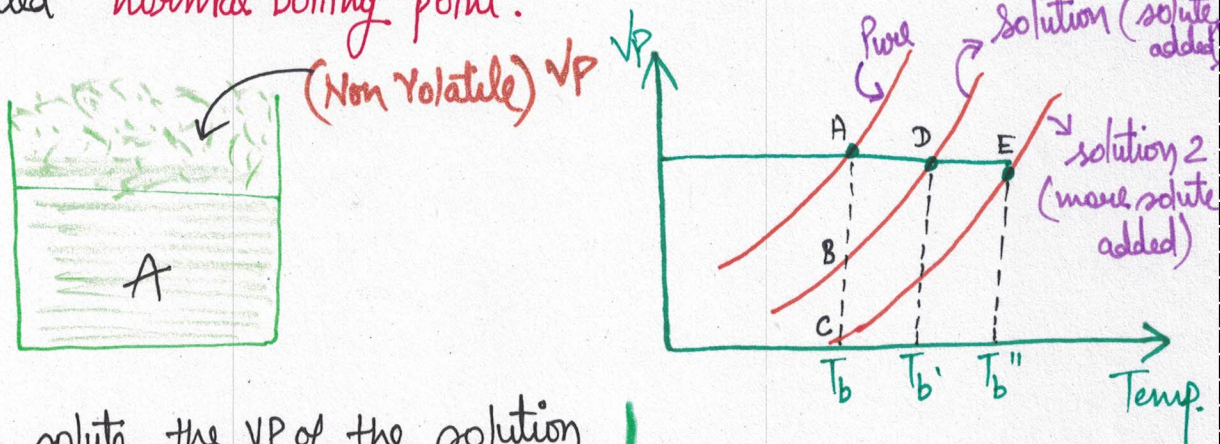 normal boiling point.
(Non Volatile) VP
A
VP
Pure
solution (solute
added)
A
D
E
solution 2
(more solute
added)
B
C
Tb
Tb'
Tb"
Temp.
solute the VP of the solution